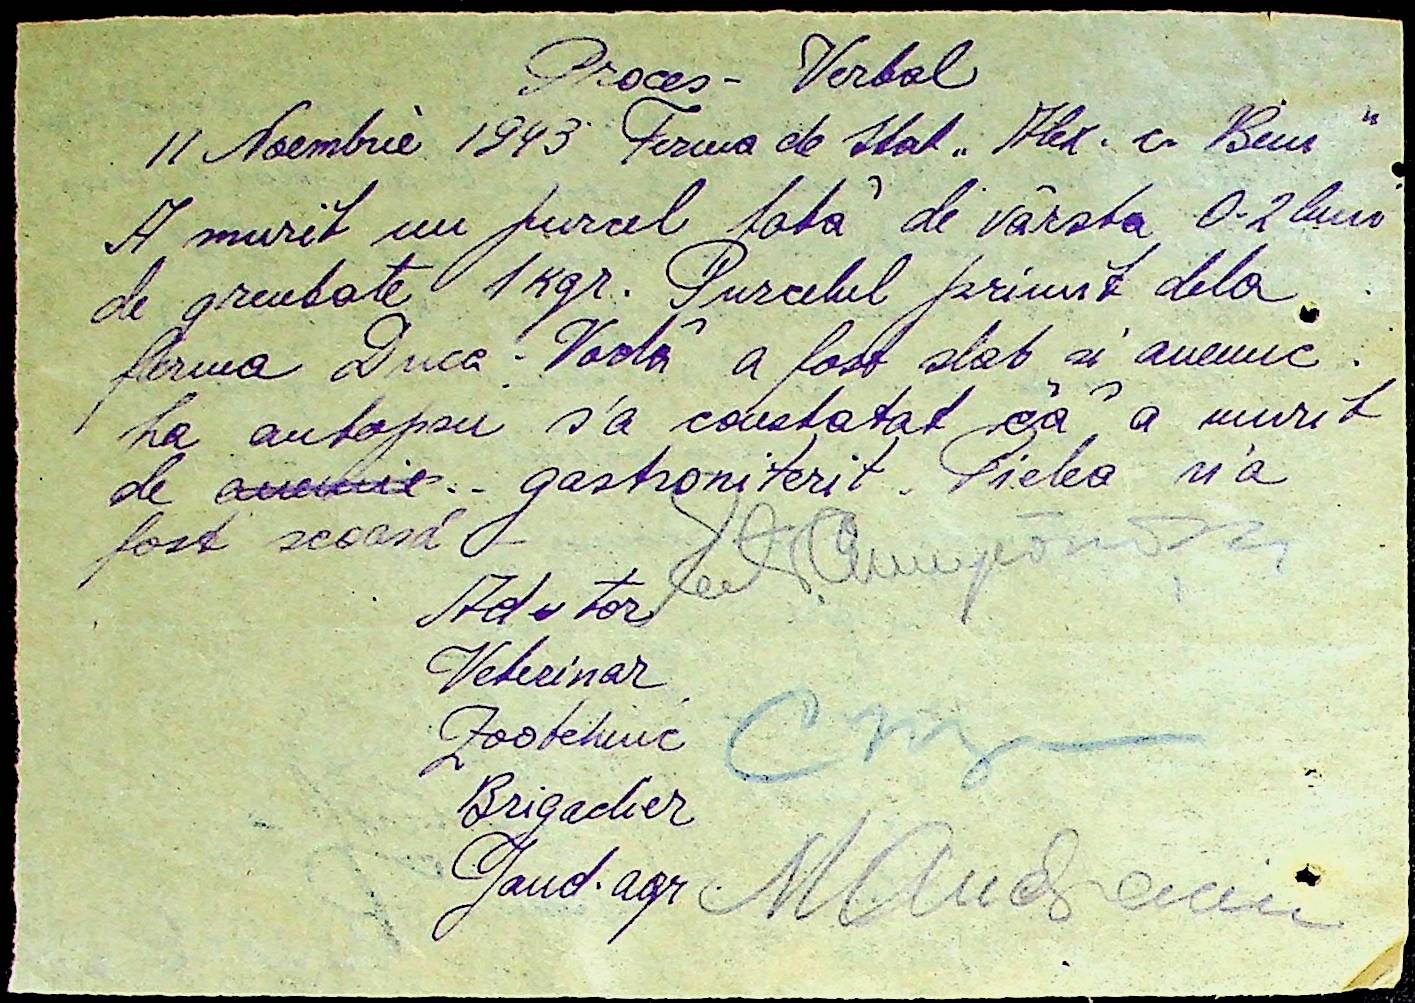 Proces - Verbal
11 Noembrie 1943 Ferma de Stat „Alex. c.
A murit un purcel fată de vârsta 0-2 luni
de greutate 1 kgr. Purcelul primit dela
ferma Duca-Vodă a fost slab si anemic.
La autopsii s'a constatat că a murit
de anemie.. gastroniterit. Pielea n'a
fost scoasă
Ad-tor
Veterinar
Zootehnic
Brigadier
Jand. agr.